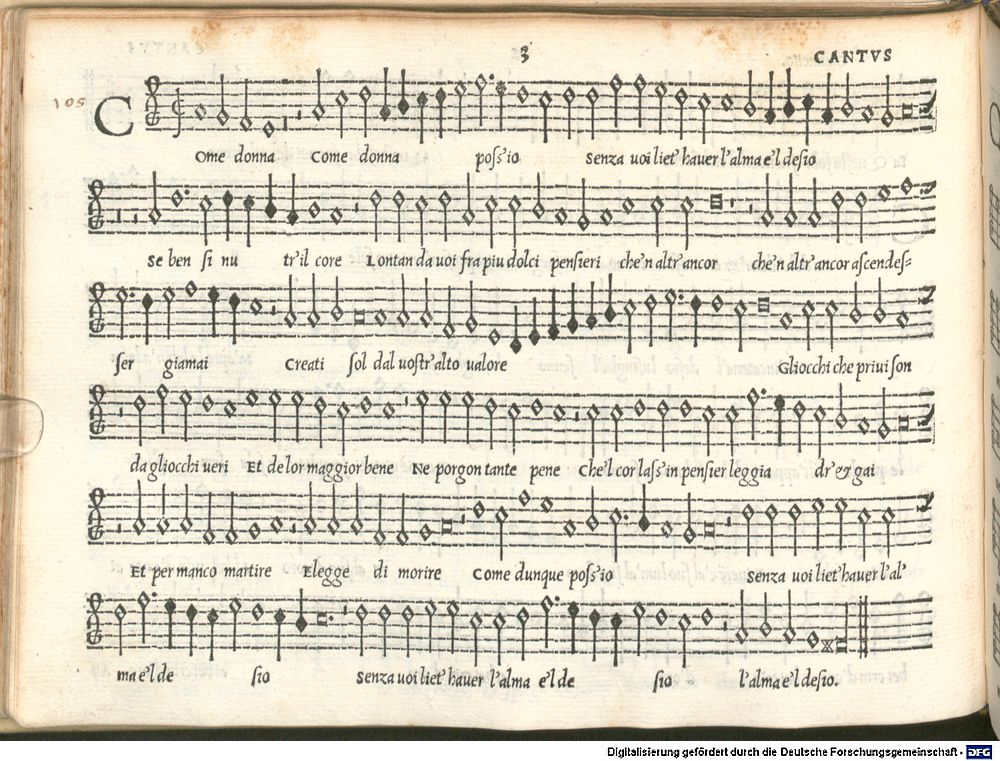 3
CANTVS
105
COme donna Come donna poſſ'io Senza uoi liet'hauer l'alma e'l deſio
Se ben ſi nu tr'il core Lontan da uoi fra piu dolci penſieri che'n altr'ancor che'n altr'ancor aſcendeſ=
ſer giamai Creati ſol dal uoſtr'alto ualore Gliocchi che priui ſon
da gliocchi ueri Et de lor maggior bene Ne porgon tante pene Che'l cor laſſ'in penſier leggia dr'e gai
Et per manco martire Elegge di morire Come dunque poſſ'io Senza uoi liet'hauer l'al'
ma e'l de ſio Senza uoi liet'hauer l'alma e'l de ſio l'alma e'l deſio.
Digitalisierung gefördert durch die Deutsche Forschungsgemeinschaft - DFG